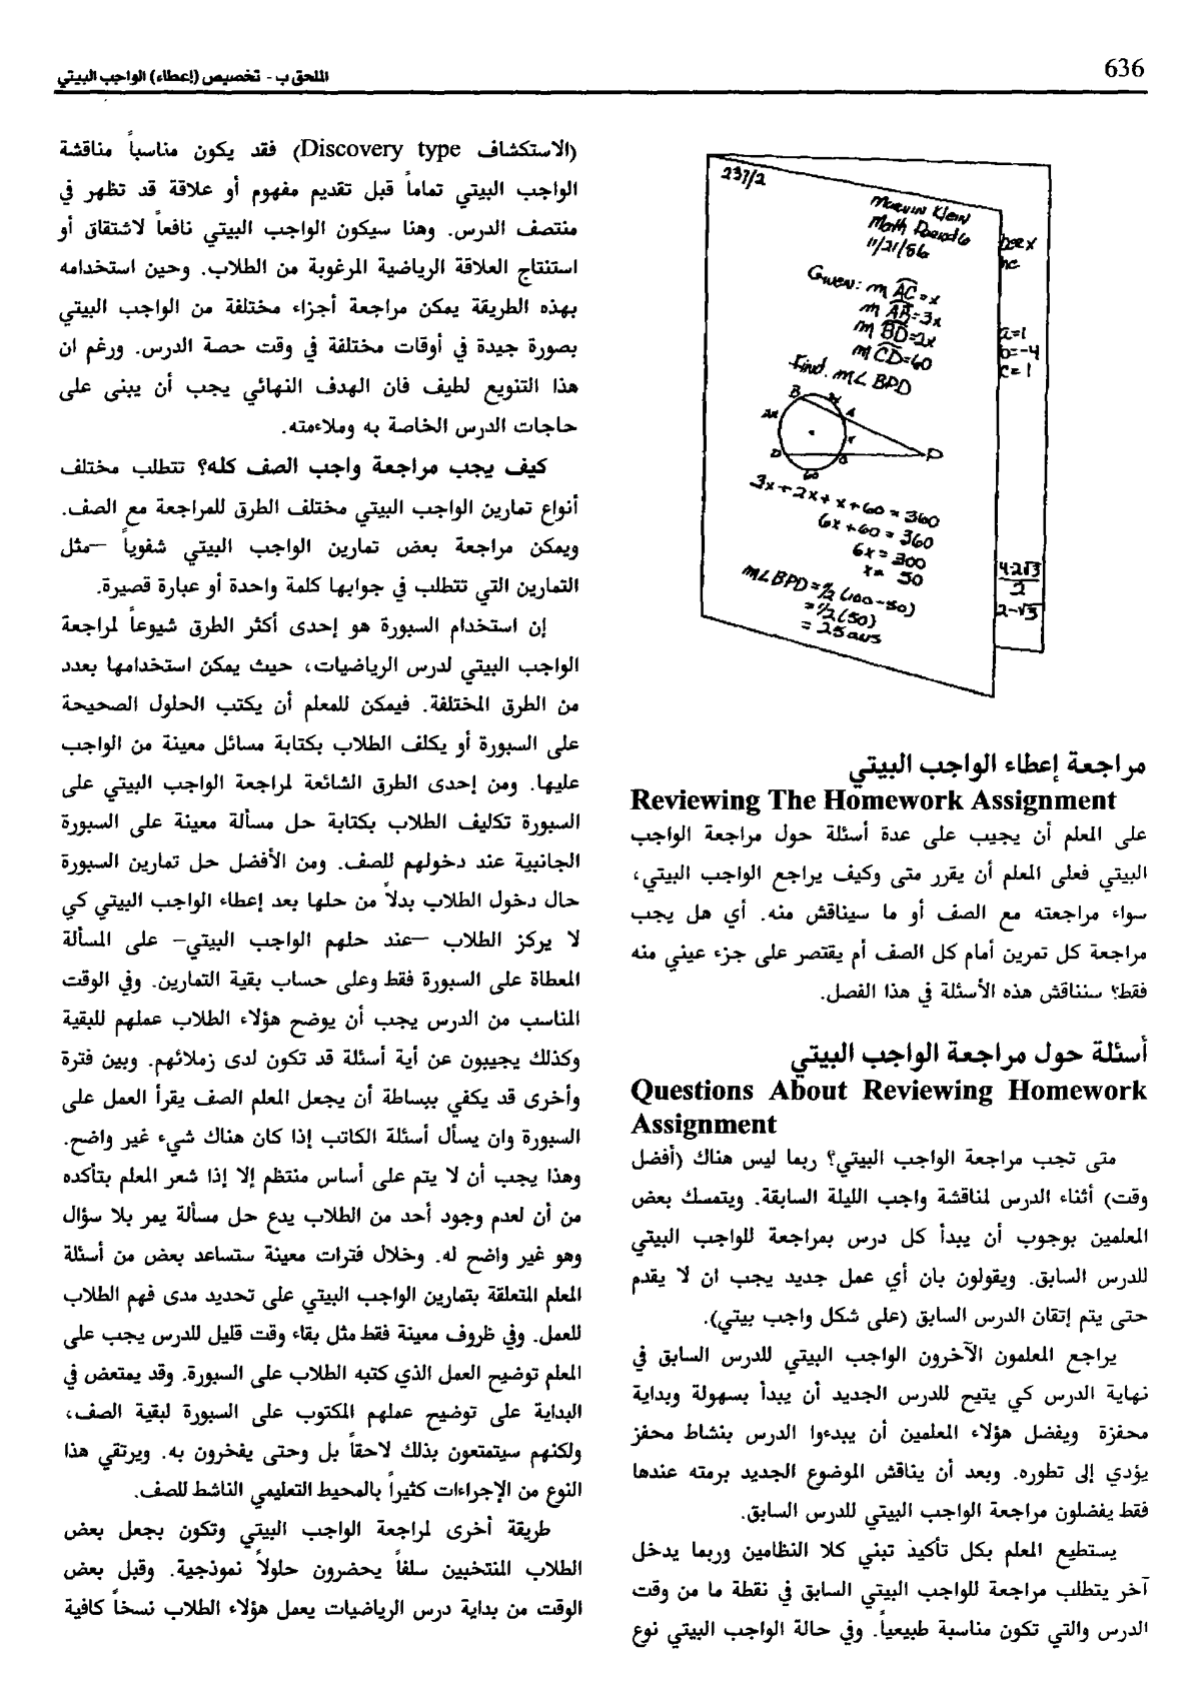 636
الملحق ب - تخصيص (إعطاء) الواجب البيتي
237/2
Marvin Klein
Math Period 6
11/21/86
Given: m AC = x
m AB = 3x
m BD = 2x
m CD = 60
Find: m∠ BPD
B
3x
A
2x
x
P
D
C
60
3x + 2x + x + 60 = 360
6x + 60 = 360
6x = 300
x = 50
m∠BPD = ½ (100 - 50)
= ½ (50)
= 25 ans
a=1
b=-4
c=1
2-√3
مراجعة إعطاء الواجب البيتي
Reviewing The Homework Assignment
على المعلم أن يجيب على عدة أسئلة حول مراجعة الواجب
البيتي فعلى المعلم أن يقرر متى وكيف يراجع الواجب البيتي،
سواء مراجعته مع الصف أو ما سيناقش منه. أي هل يجب
مراجعة كل تمرين أمام كل الصف أم يقتصر على جزء عيني منه
فقط؟ سنناقش هذه الأسئلة في هذا الفصل.
أسئلة حول مراجعة الواجب البيتي
Questions About Reviewing Homework
Assignment
متى تجب مراجعة الواجب البيتي؟ ربما ليس هناك (أفضل
وقت) أثناء الدرس لمناقشة واجب الليلة السابقة. ويتمسك بعض
المعلمين بوجوب أن يبدأ كل درس بمراجعة للواجب البيتي
للدرس السابق. ويقولون بان أي عمل جديد يجب ان لا يقدم
حتى يتم إتقان الدرس السابق (على شكل واجب بيتي).
يراجع المعلمون الآخرون الواجب البيتي للدرس السابق في
نهاية الدرس كي يتيح للدرس الجديد أن يبدأ بسهولة وبداية
محفزة ويفضل هؤلاء المعلمين أن يبدءوا الدرس بنشاط محفز
يؤدي إلى تطوره. وبعد أن يناقش الموضوع الجديد برمته عندها
فقط يفضلون مراجعة الواجب البيتي للدرس السابق.
يستطيع المعلم بكل تأكيد تبني كلا النظامين وربما يدخل
آخر يتطلب مراجعة للواجب البيتي السابق في نقطة ما من وقت
الدرس والتي تكون مناسبة طبيعياً. وفي حالة الواجب البيتي نوع
(الاستكشاف Discovery type) فقد يكون مناسباً مناقشة
الواجب البيتي تماماً قبل تقديم مفهوم أو علاقة قد تظهر في
منتصف الدرس. وهنا سيكون الواجب البيتي نافعاً لاشتقاق أو
استنتاج العلاقة الرياضية المرغوبة من الطلاب. وحين استخدامه
بهذه الطريقة يمكن مراجعة أجزاء مختلفة من الواجب البيتي
بصورة جيدة في أوقات مختلفة في وقت حصة الدرس. ورغم ان
هذا التنويع لطيف فان الهدف النهائي يجب أن يبنى على
حاجات الدرس الخاصة به وملاءمته.
كيف يجب مراجعة واجب الصف كله؟ تتطلب مختلف
أنواع تمارين الواجب البيتي مختلف الطرق للمراجعة مع الصف.
ويمكن مراجعة بعض تمارين الواجب البيتي شفوياً –مثل
التمارين التي تتطلب في جوابها كلمة واحدة أو عبارة قصيرة.
إن استخدام السبورة هو إحدى أكثر الطرق شيوعاً لمراجعة
الواجب البيتي لدرس الرياضيات، حيث يمكن استخدامها بعدد
من الطرق المختلفة. فيمكن للمعلم أن يكتب الحلول الصحيحة
على السبورة أو يكلف الطلاب بكتابة مسائل معينة من الواجب
عليها. ومن إحدى الطرق الشائعة لمراجعة الواجب البيتي على
السبورة تكليف الطلاب بكتابة حل مسألة معينة على السبورة
الجانبية عند دخولهم للصف. ومن الأفضل حل تمارين السبورة
حال دخول الطلاب بدلاً من حلها بعد إعطاء الواجب البيتي كي
لا يركز الطلاب –عند حلهم الواجب البيتي– على المسألة
المعطاة على السبورة فقط وعلى حساب بقية التمارين. وفي الوقت
المناسب من الدرس يجب أن يوضح هؤلاء الطلاب عملهم للبقية
وكذلك يجيبون عن أية أسئلة قد تكون لدى زملائهم. وبين فترة
وأخرى قد يكفي ببساطة أن يجعل المعلم الصف يقرأ العمل على
السبورة وان يسأل أسئلة الكاتب إذا كان هناك شيء غير واضح.
وهذا يجب أن لا يتم على أساس منتظم إلا إذا شعر المعلم بتأكده
من أن لعدم وجود أحد من الطلاب يدع حل مسألة يمر بلا سؤال
وهو غير واضح له. وخلال فترات معينة ستساعد بعض من أسئلة
المعلم المتعلقة بتمارين الواجب البيتي على تحديد مدى فهم الطلاب
للعمل. وفي ظروف معينة فقط مثل بقاء وقت قليل للدرس يجب على
المعلم توضيح العمل الذي كتبه الطلاب على السبورة. وقد يمتعض في
البداية على توضيح عملهم المكتوب على السبورة لبقية الصف،
ولكنهم سيتمتعون بذلك لاحقاً بل وحتى يفخرون به. ويرتقي هذا
النوع من الإجراءات كثيراً بالمحيط التعليمي الناشط للصف.
طريقة أخرى لمراجعة الواجب البيتي وتكون بجعل بعض
الطلاب المنتخبين سلفاً يحضرون حلولاً نموذجية. وقبل بعض
الوقت من بداية درس الرياضيات يعمل هؤلاء الطلاب نسخاً كافية